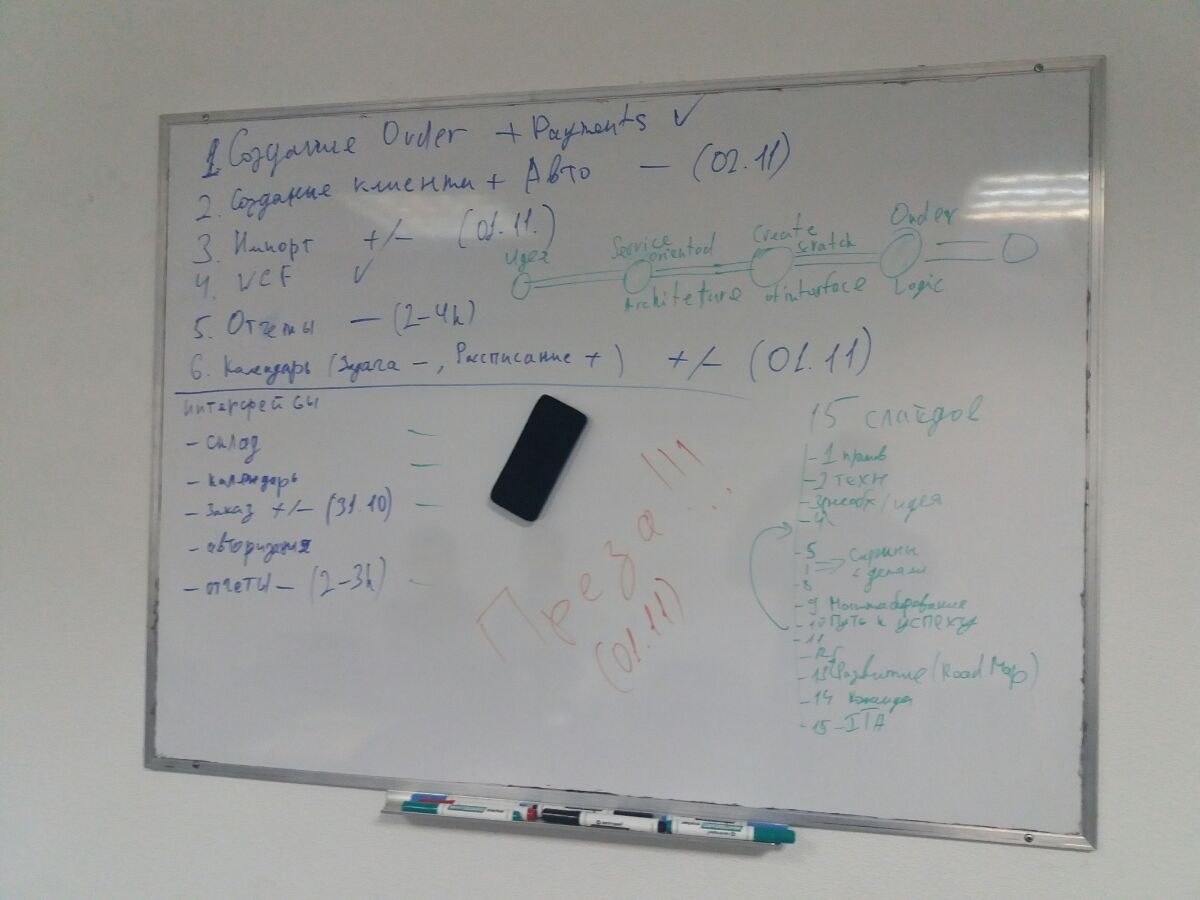 1. Создание Order + Payments ✓
2. Создание клиента + Авто — (02.11)
3. Импорт +/- (01.11.)
4. VCF ✓
5. Отчеты — (2-4h)
6. Календарь (Задача -, Расписание +) +/- (01.11)
Идея
Service oriented
Architeture
Create scratch
of interface
Order
Logic
Интерфейсы
- склад
- календарь
- Заказ +/- (31.10)
- авторизация
- отчеты - (2-3h)
Преза!!!
(01.11)
15 слайдов
- 1 прив
- 2 техн
- 3 необх/идея
- 4
- 5
- 8
Скрины
с
- 9 Масштабирование
- 10 Путь к успеху
- 11
- 12
- 13 Развитие (Road Map)
- 14 Команда
- 15 - ITA